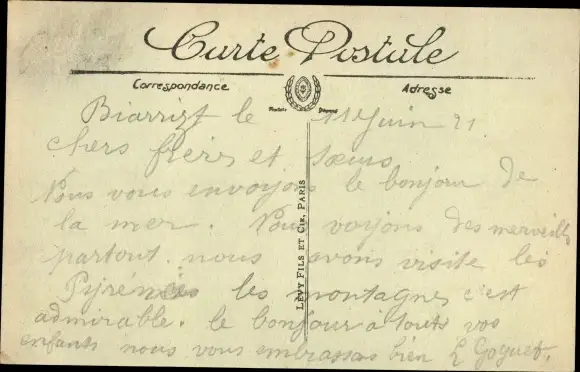 Carte Postale
Correspondance
Adresse
Modèle Déposé
LEVY FILS ET CIE, PARIS
Biarrizt le 11 Juin 21.
chers frères et sœurs
Nous vous envoyons le bonjour de
la mer. Nous voyons des merveills
partout. nous avons visite les
Pyrénées les montagnes c'est
admirable. le bonjour a touts vos
enfants nous vous embrassons bien L Goguet.